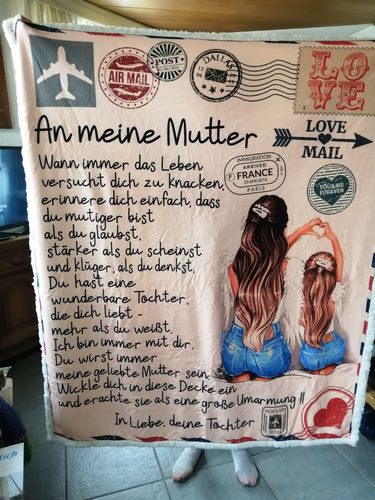 AIR MAIL
POST
DALLAS
LOVE
An meine Mutter
LOVE
MAIL
Wann immer das Leben
versucht dich zu knacken,
erinnere dich einfach, dass
du mutiger bist
als du glaubst,
stärker als du scheinst
und klüger, als du denkst.
Du hast eine
wunderbare Tochter.
die dich liebt -
mehr als du weißt.
Ich bin immer mit dir.
Du wirst immer
meine geliebte Mutter sein.
Wickle dich in diese Decke ein
und erachte sie als eine große Umarmung !!
In Liebe, deine Tochter
IMMIGRATION
ARRIVED
FRANCE
PARIS
YOU&ME
FOREVER
tich